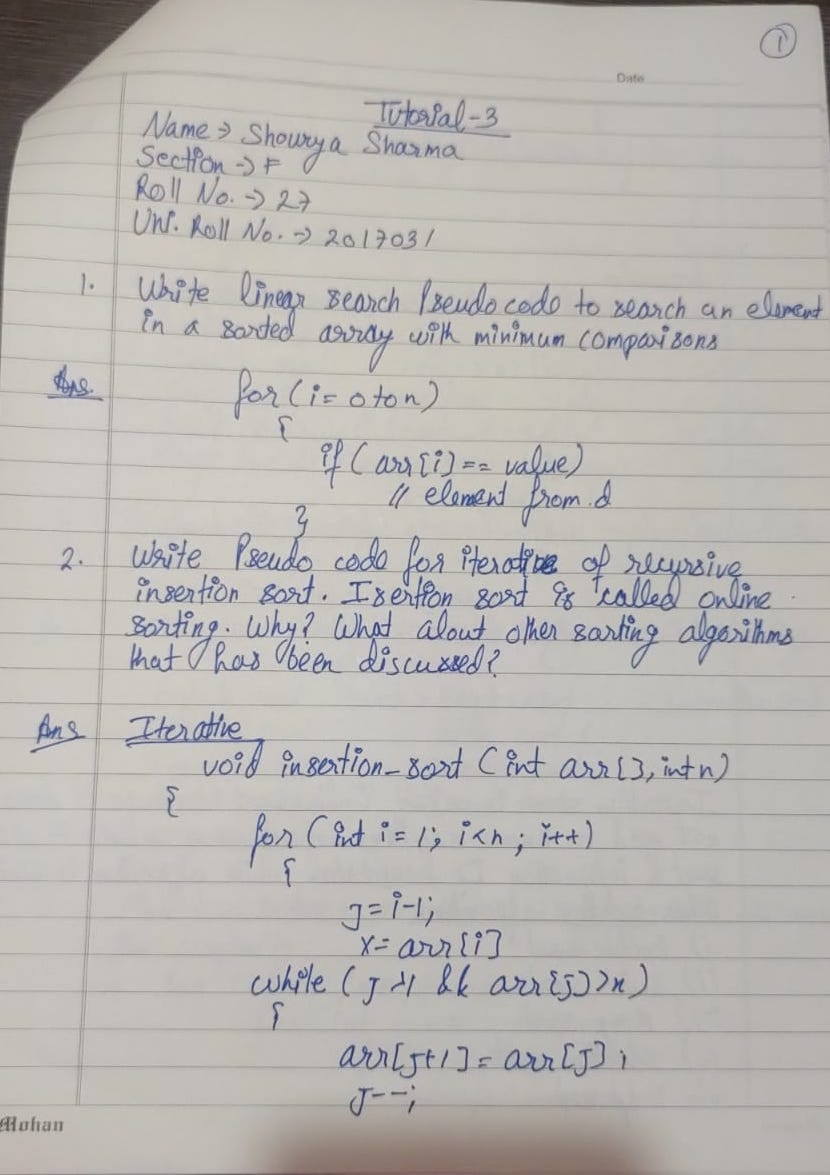 1
Date
Tutorial-3
Name → Shourya Sharma
Section → F
Roll No. → 27
Uni. Roll No. → 2017031
1. Write linear search Pseudo code to search an element
in a sorted array with minimum comparisons
Ans. for (i= 0 to n)
{
if (arr[i] == value)
// element from.d
}
2. Write Pseudo code for iterative of recursive
insertion sort. Isertion sort is called online
sorting. Why? What alout other sarting algorithms
that has been discussed?
Ans Iterative
void insertion_sort (int arr[], int n)
{
for (int i = 1; i<n ; i++)
{
J= i-1;
x= arr[i]
while (J && arr[j]>x)
{
arr[J+1] = arr[J];
J--;
Mohan